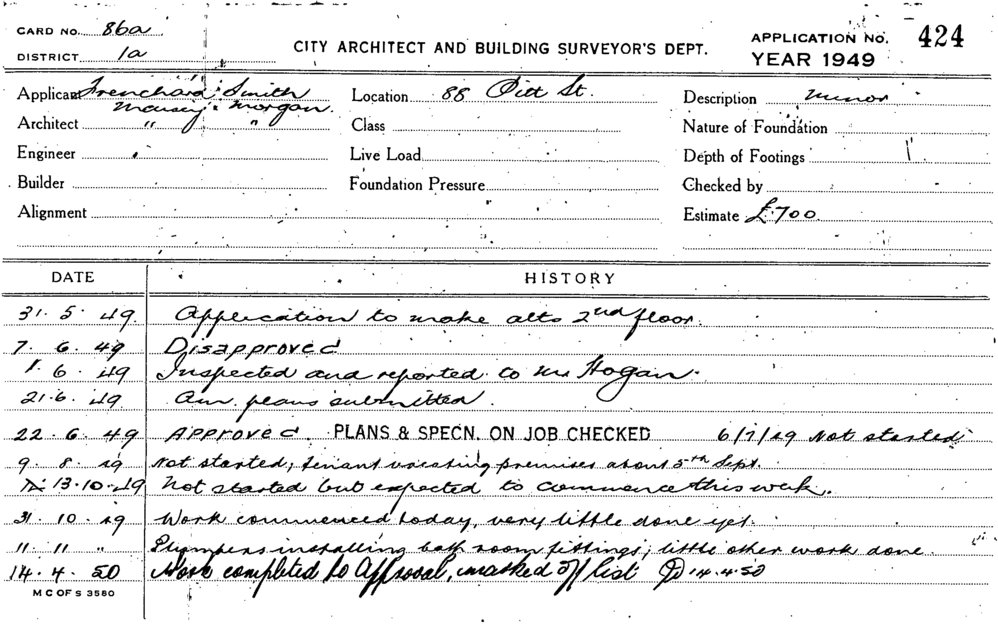 CARD NO. 86a
DISTRICT 1a
CITY ARCHITECT AND BUILDING SURVEYOR'S DEPT.
APPLICATION NO. 424
YEAR 1949
Applicant Trenchard Smith
Maisey & Morgan.
Architect " "
Engineer
Builder
Alignment
Location 88 Pitt St.
Class
Live Load
Foundation Pressure
Description Minor
Nature of Foundation
Depth of Footings
Checked by
Estimate £700
DATE HISTORY
31. 5. 49. Application to make alts 2nd floor.
7. 6. 49 Disapproved
1. 6. 49 Inspected and reported to Mr Hogan.
21. 6. 49. Am. plans submitted.
22. 6. 49 Approved. PLANS & SPECN. ON JOB CHECKED 6/7/49 Not started
9. 8. 49 Not started; tenant vacating premises about 5th Sept.
13. 10. 49 Not started but expected to commence this week.
31. 10. 49 Work commenced today, very little done yet.
11. 11 " Plumbers installing bath room fittings; little other work done.
14. 4. 50 Work completed to Approval, marked off list 14.4.50
M C OF S 3580